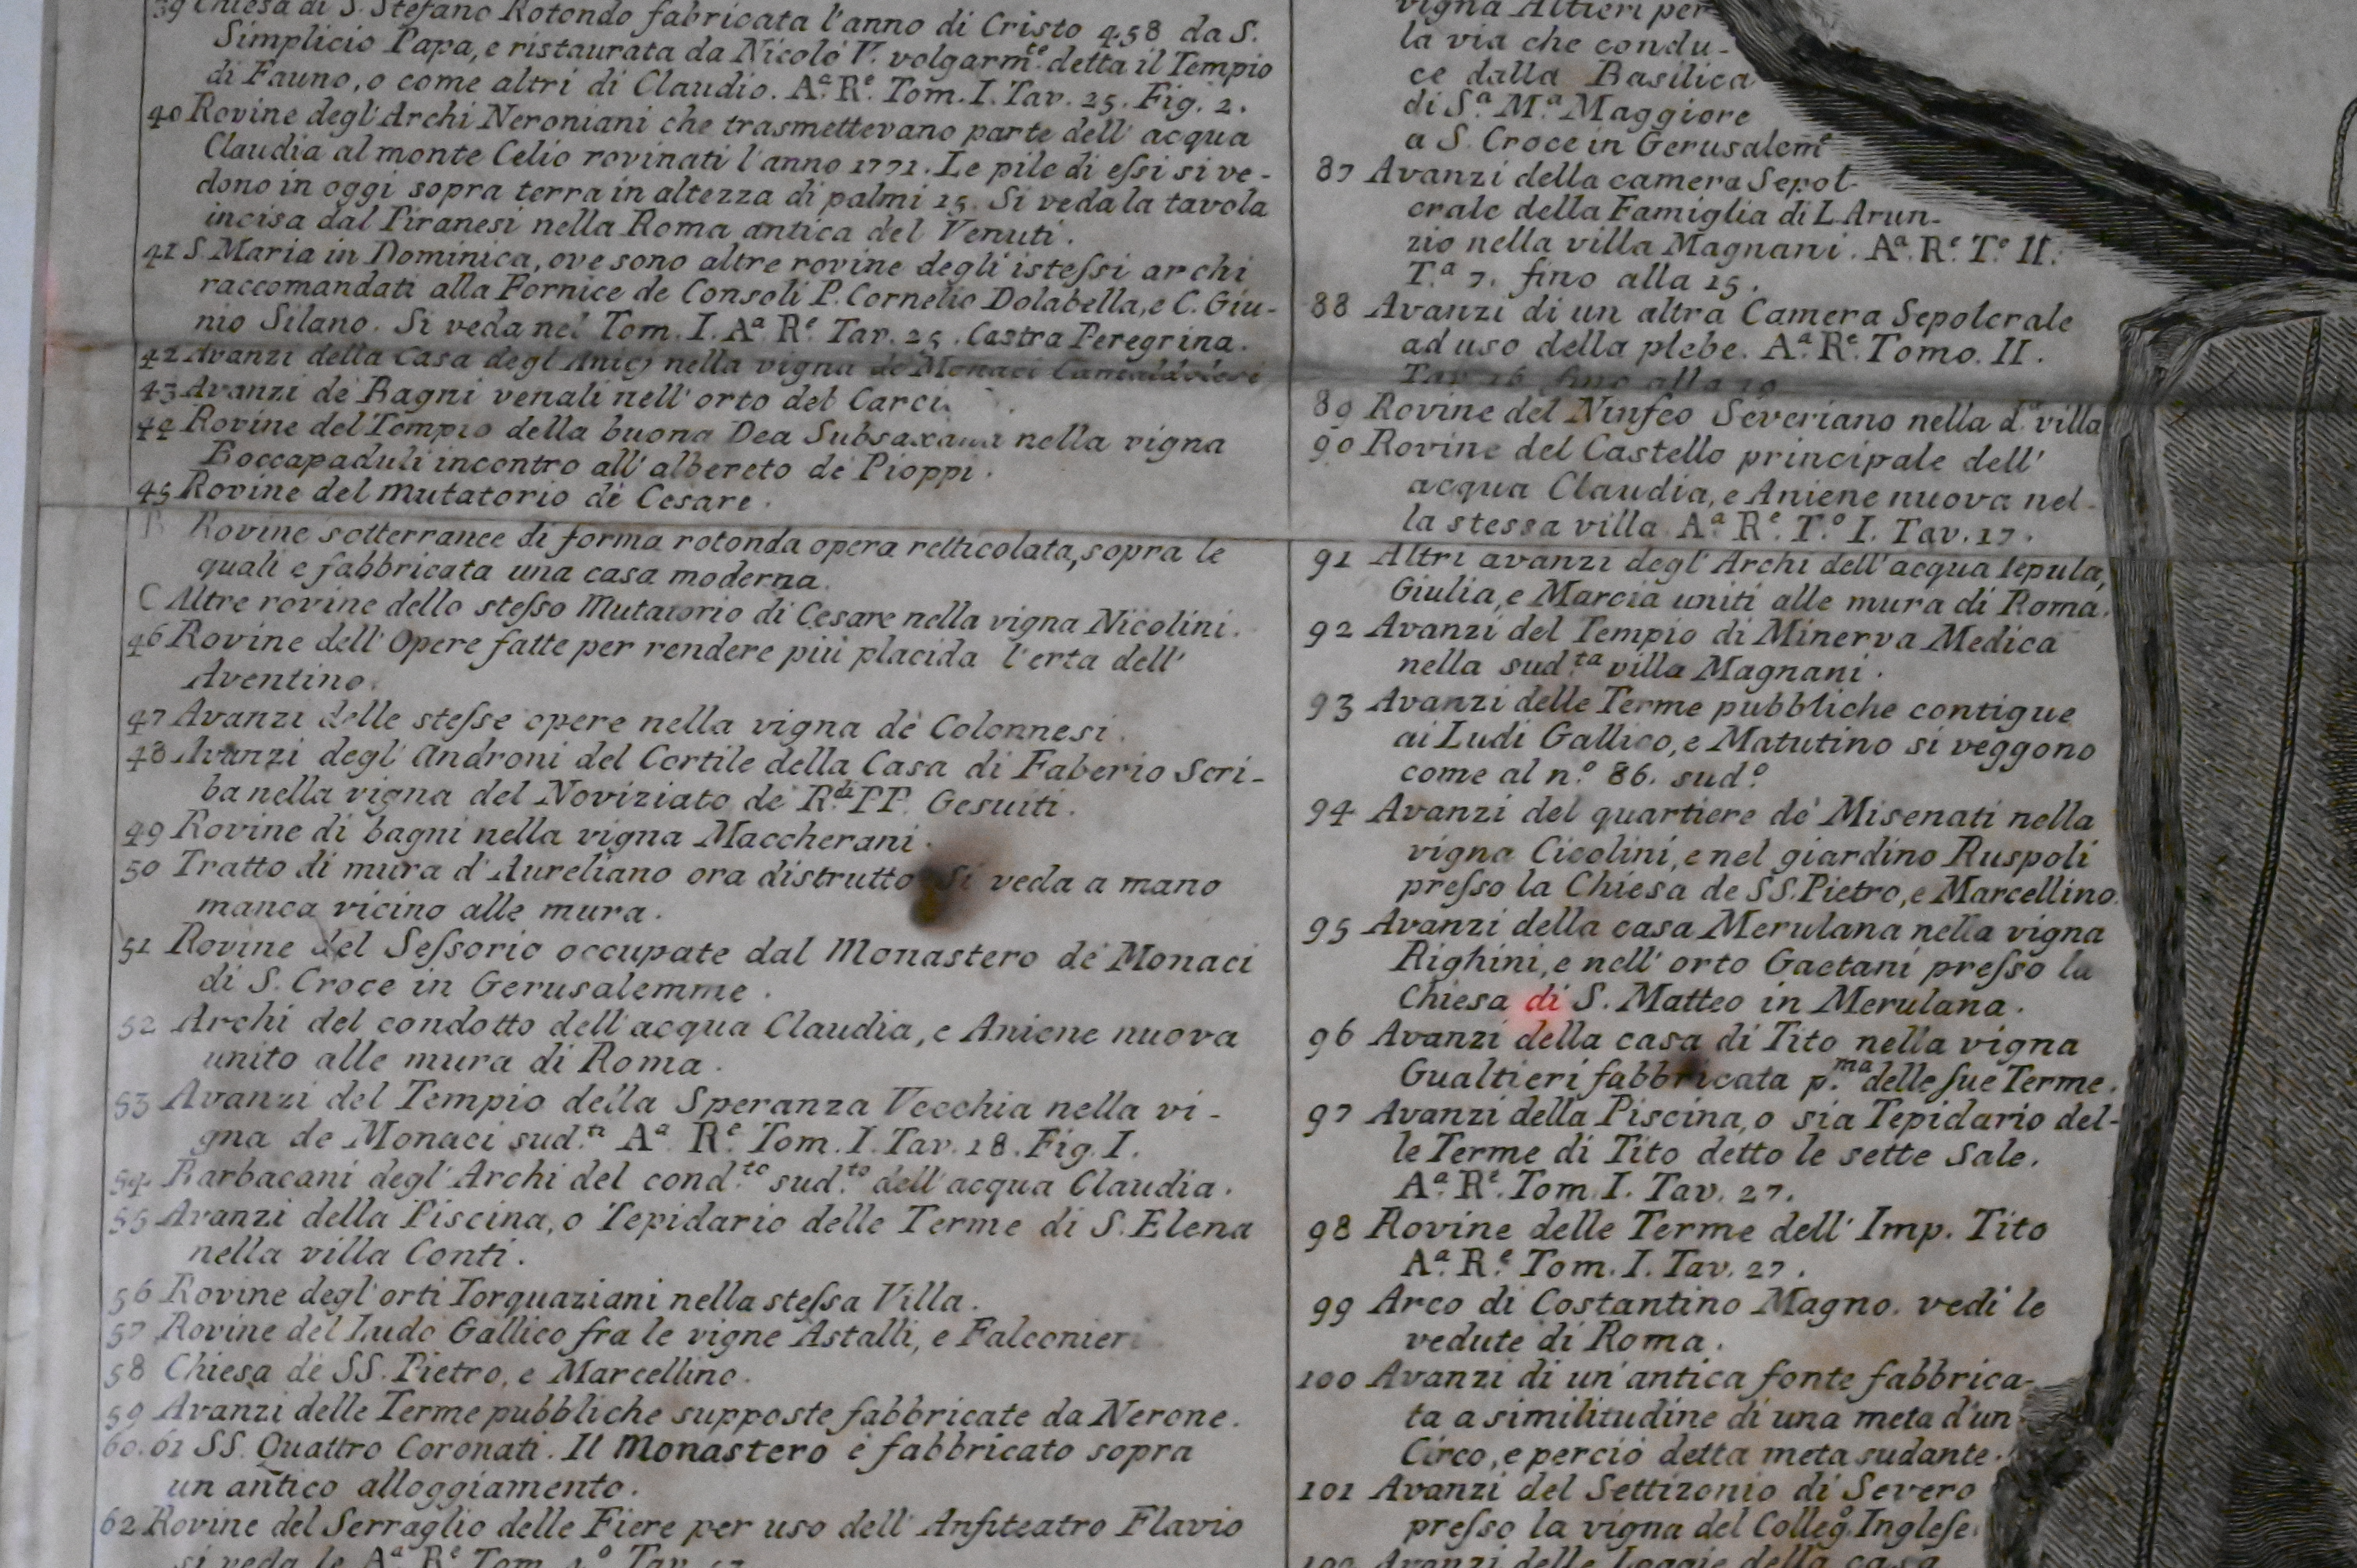 39 Chiesa di S. Stefano Rotondo fabricata l'anno di Cristo 458 da S.
Simplicio Papa, e ristaurata da Nicolò V. volgarm.te detta il Tempio
di Fauno, o come altri di Claudio. A.a R.e Tom. I. Tav. 25. Fig. 2.
40 Rovine degl'Archi Neroniani che trasmettevano parte dell' acqua
Claudia al monte Celio rovinati l'anno 1771. Le pile di eſsi si ve-
dono in oggi sopra terra in altezza di palmi 15. Si veda la tavola
incisa dal Piranesi nella Roma antica del Venuti.
41 S. Maria in Dominica, ove sono altre rovine degli isteſsi archi
raccomandati alla Fornice de Consoli P. Cornelio Dolabella, e C. Giu-
nio Silano. Si veda nel Tom. I. A.a R.e Tav. 25. Castra Peregrina.
42 Avanzi della Casa degl'Anicj nella vigna de Monaci Camaldolesi
43 Avanzi de Bagni venali nell' orto del Carci.
44 Rovine del Tempio della buona Dea Subsaxana nella vigna
Boccapaduli incontro all' albereto de Pioppi.
45 Rovine del Mutatorio di Cesare.
B Rovine sotterranee di forma rotonda opera retticolata, sopra le
quali e fabbricata una casa moderna.
C Altre rovine dello steſso Mutatorio di Cesare nella vigna Nicolini.
46 Rovine dell' Opere fatte per rendere più placida l'erta dell'
Aventino.
47 Avanzi delle steſse opere nella vigna de Colonnesi.
48 Avanzi degl' Androni del Cortile della Casa di Faberio Scri-
ba nella vigna del Noviziato de R.di PP. Gesuiti.
49 Rovine di bagni nella vigna Maccherani.
50 Tratto di mura d'Aureliano ora distrutto Si veda a mano
manca vicino alle mura.
51 Rovine del Seſsorio occupate dal Monastero de Monaci
di S. Croce in Gerusalemme.
52 Archi del condotto dell'acqua Claudia, e Aniene nuova
unito alle mura di Roma.
53 Avanzi del Tempio della Speranza Vecchia nella vi-
gna de Monaci sud.ti A.a R.e Tom. I. Tav. 18. Fig. I.
54 Barbacani degl'Archi del cond.to sud.to dell'acqua Claudia.
55 Avanzi della Piscina, o Tepidario delle Terme di S. Elena
nella villa Conti.
56 Rovine degl'orti Torquaziani nella steſsa Villa.
57 Rovine del Ludo Gallico fra le vigne Astalli, e Falconieri
58 Chiesa de SS. Pietro, e Marcellino.
59 Avanzi delle Terme pubbliche supposte fabbricate da Nerone.
60. 61 SS. Quattro Coronati. Il Monastero è fabbricato sopra
un antico alloggiamento.
62 Rovine del Serraglio delle Fiere per uso dell' Anfiteatro Flavio
si veda le A.a R.e Tom. Tav.
vigna Altieri per
la via che condu-
ce dalla Basilica
di S.a M.a Maggiore
a S. Croce in Gerusalem̅e
87 Avanzi della camera Sepol-
crale della Famiglia di L. Arun-
zio nella villa Magnani. A.a R.e T.o II.
T.a 7. fino alla 15.
88 Avanzi di un altra Camera Sepolcrale
ad uso della plebe. A.a R.e Tomo. II.
Tav. 16 fino alla 19
89 Rovine del Ninfeo Severiano nella d.a villa
90 Rovine del Castello principale dell'
acqua Claudia, e Aniene nuova nel-
la stessa villa A.a R.e T.o I. Tav. 17.
91 Altri avanzi degl'Archi dell'acqua Tepula,
Giulia, e Marcia uniti alle mura di Roma.
92 Avanzi del Tempio di Minerva Medica
nella sud.ta villa Magnani.
93 Avanzi delle Terme pubbliche contigue
ai Ludi Gallico, e Matutino si veggono
come al n.o 86. sud.o
94 Avanzi del quartiere de' Misenati nella
vigna Cicolini, e nel giardino Ruspoli
preſso la Chiesa de SS. Pietro, e Marcellino.
95 Avanzi della casa Merulana nella vigna
Righini, e nell' orto Gaetani preſso la
Chiesa di S. Matteo in Merulana.
96 Avanzi della casa di Tito nella vigna
Gualtieri fabbricata p.ma delle sue Terme.
97 Avanzi della Piscina, o sia Tepidario del-
le Terme di Tito detto le sette Sale.
A.a R.e Tom. I. Tav. 27.
98 Rovine delle Terme dell' Imp. Tito
A.a R.e Tom. I. Tav. 27.
99 Arco di Costantino Magno. vedi le
vedute di Roma.
100 Avanzi di un'antica fonte fabbrica-
ta a similitudine di una meta d'un
Circo, e perciò detta meta sudante.
101 Avanzi del Settizonio di Severo
preſso la vigna del Colleg.o Ingleſe
102 Avanzi delle Loggie della casa